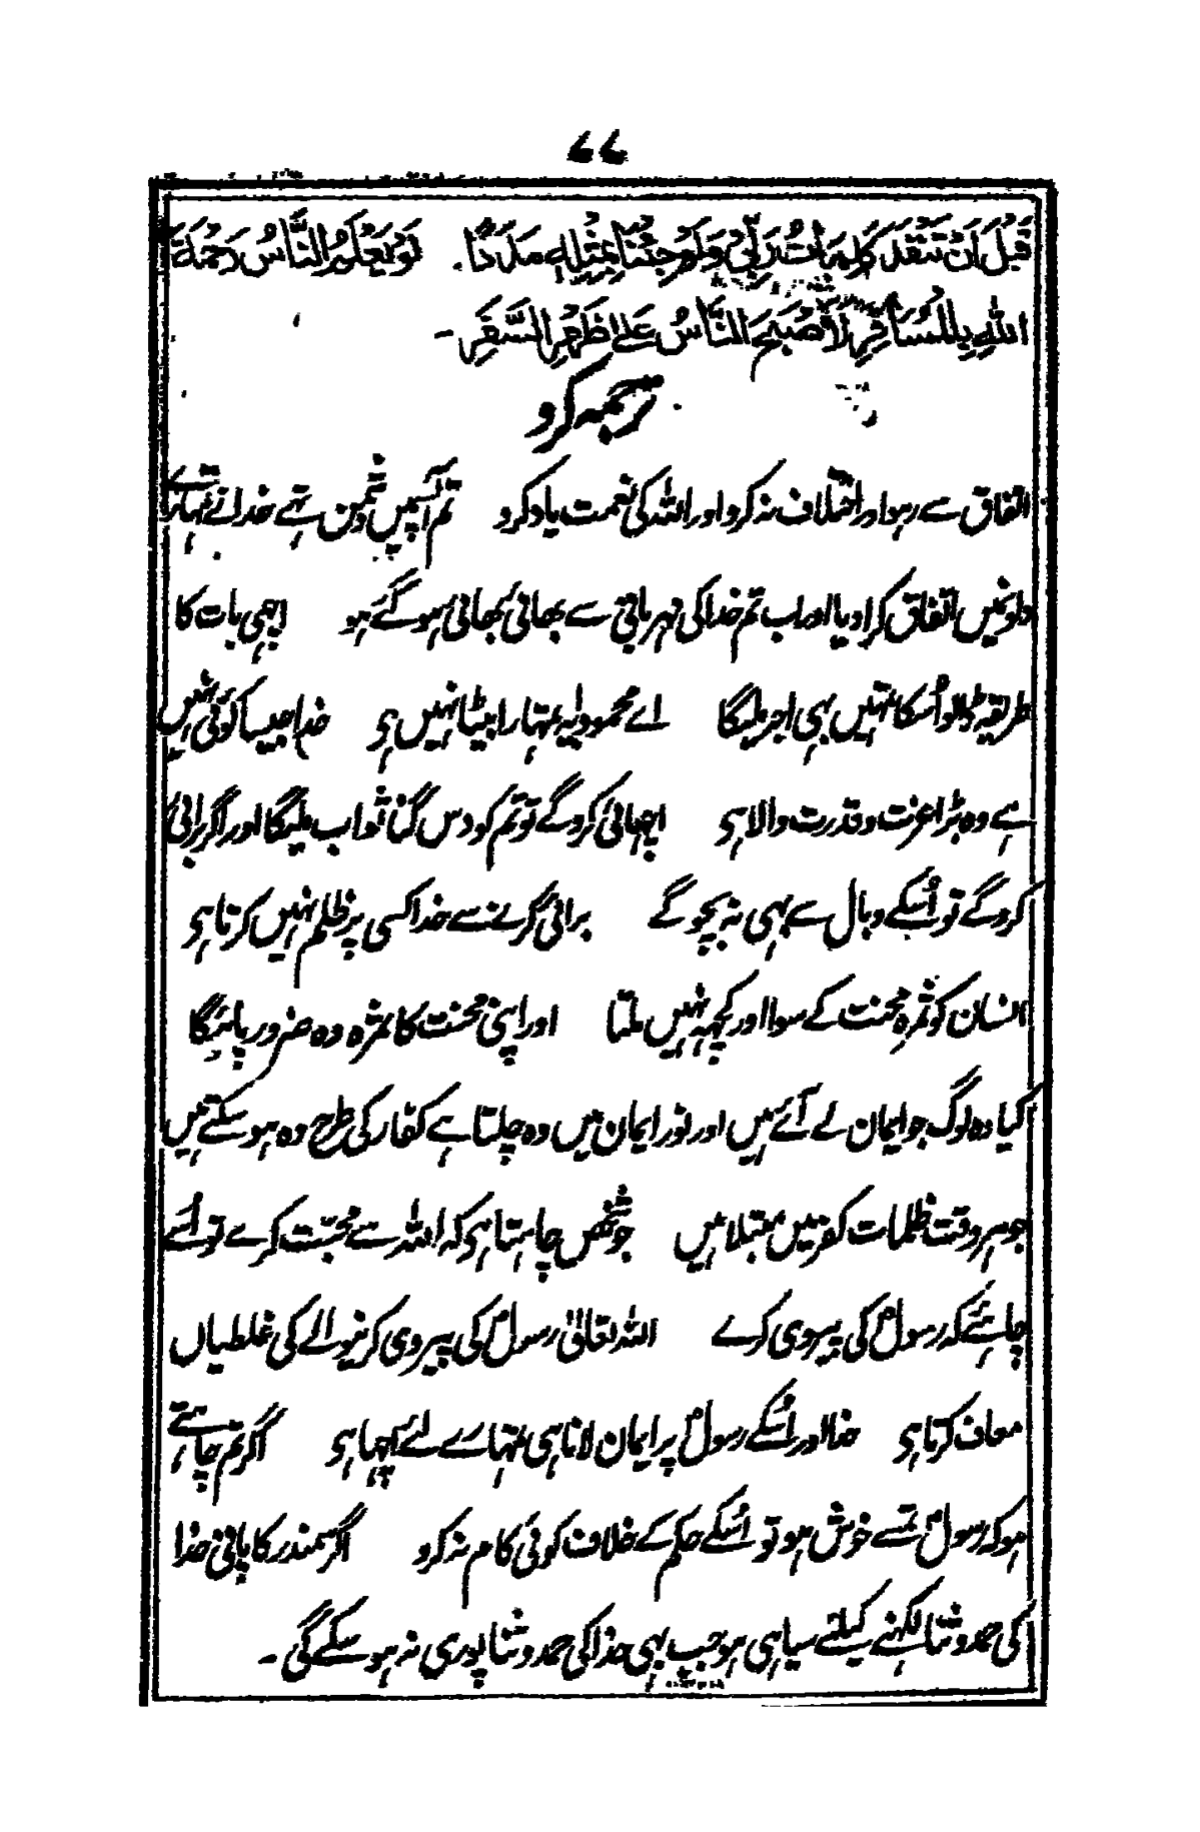 ۷۷
قَبْلَ اَنْ تَنْفَدَ كَلِمَاتُ رَبِّیْ وَلَوْ جِئْنَا بِمِثْلِهٖ مَدَدًا۔ لَوْ یَعْلَمُ النَّاسُ رَحْمَةَ
اللّٰهِ لِلْمُسَافِرِ لَاَصْبَحَ النَّاسُ عَلیٰ ظَهْرِ السَّفَرِ ۔
ترجمہ کرو
اتفاق سے رہو اور اختلاف نہ کرو اور اللہ کی نعمت یاد کرو تم آپسمیں دشمن تہے خدا نے تمہارے
دلونمیں اتفاق کرا دیا اور اب تم خدا کی مہربانی سے بھائی بھائی ہو گئے ہو اچہی بات کا
طریقہ ڈالو اُسکا تمہیں بہی اجر ملیگا اے محمود یہ تمہارا بیٹا نہیں ہی خدا جیسا کوئی نہیں
ہے وہ بڑا عزت و قدرت والا ہی اچہائی کروگے تو تم کو دس گنا ثواب ملیگا اور اگر برائی
کروگے تو اُسکے وبال سے بہی نہ بچوگے برائی کرنے سے خدا کسی پر ظلم نہیں کرتا ہی
انسان کو ثمرہ محنت کے سوا اور کچہہ نہیں ملتا اور اپنی محنت کا ثمرہ وہ ضرور پائیگا
کیا وہ لوگ جو ایمان لے آئے ہیں اور نور ایمان میں وہ چلتا ہے کفار کی طرح وہ ہو سکتے ہیں
جو ہر وقت ظلمات کفر میں مبتلا ہیں جو شخص چاہتا ہی کہ اللہ سے محبّت کرے تو اُسے
چاہئے کہ رسولؐ کی پیروی کرے اللہ تعالیٰ رسولؐ کی پیروی کرنیوالے کی غلطیاں
معاف کرتا ہی خدا اور اُسکے رسولؐ پر ایمان لانا ہی تمہارے لئے اچہا ہی اگر تم چاہتے
ہو کہ رسولؐ تمسے خوش ہو تو اُسکے حکم کے خلاف کوئی کام نہ کرو اگر سمندر کا پانی خدا
کی حمد و ثنا لکہنے کیلئے سیاہی ہو جب بہی خدا کی حمد و ثنا پوری نہ ہو سکے گی ۔